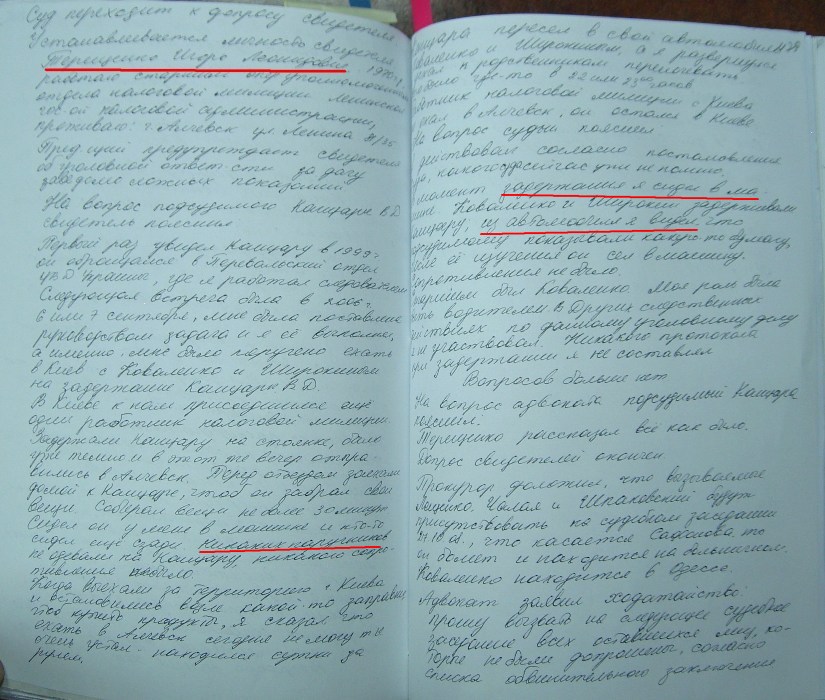 Суд переходит к допросу свидетеля
Устанавливается личность свидетеля
Терещенко Игорь Леонидович, 1970 г.
работал старшим оперуполномоченным
отдела налоговой милиции
гос-ой налоговой администрации,
проживаю: г. Алчевск ул. Ленина
Пред-щий предупреждает свидетеля
об уголовной ответ-сти за дачу
заведомо ложных показаний
На вопрос подсудимого Кашцары В.Д.
свидетель пояснил
Первый раз увидел Кашцару в 1999 г.
он обращался в Перевальский отдел
Украины, где я работал следователем
Следующая встреча была в 2006 г.
6 или 7 сентября, мне была поставлена
руководством задача и я её выполнял,
а именно, мне было поручено ехать
в Киев с Коваленко и Широкиным
на задержание Кашцары В.Д.
В Киеве к нам присоединился ещё
один работник налоговой милиции.
Задержали Кашцару на стоянке, было
уже темно и в этот же вечер отпра-
вились в Алчевск. Перед отъездом заехали
домой к Кашцаре, чтоб он забрал свои
вещи. Собирал вещи не более 30 минут
Сидел он у меня в машине и кто-то
сидел ещё сзади. Никаких наручников
не одевали на Кашцару никакого сопро-
тивления не было.
Когда выехали за территорию г. Киева
и остановились возле какой-то заправки
чтоб купить продукты, я сказал что
ехать в Алчевск сегодня не могу т.к.
очень устал находился сутки за
рулем.
пересел в свой автомобиль
Коваленко и Широкиным, а я развернулся
к родственникам переночевать
где-то в 22 или 23 00 часов
налоговой милиции г. Киева
в Алчевск, он остался в Киеве
На вопрос судьи пояснил
действовал согласно постановления
какого сейчас уже не помню.
момент задержания я сидел в ма-
шине. Коваленко и Широкин задерживали
Кашцару, из автомобиля я видел, что
подсудимому показывали какую-то бумагу,
после её изучения он сел в машину.
сопротивления не было.
старшим был Коваленко. Моя роль была
быть водителем. В других следственных
действиях по данному уголовному делу
я не участвовал. Никакого протокола
при задержании я не составлял
Вопросов больше нет
На вопрос адвоката подсудимый Кашцара
пояснил:
Терещенко рассказал всё как было.
Допрос свидетелей окончен.
Прокурор доложил, что вызываемое
и Шпаковский будут
присутствовать на судебном заседании
что касается то
он болеет и находится на больничном.
Коваленко находится в Одессе.
Адвокат заявил ходатайство:
Прошу вызвать на следующее судебное
заседание всех оставшихся лиц, ко-
торые не были допрошены, согласно
списка обвинительного заключения